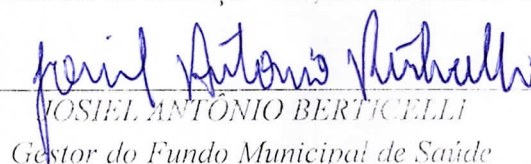 Josiel Antonio Berticelli
JOSIEL ANTÔNIO BERTICELLI
Gestor do Fundo Municipal de Saúde